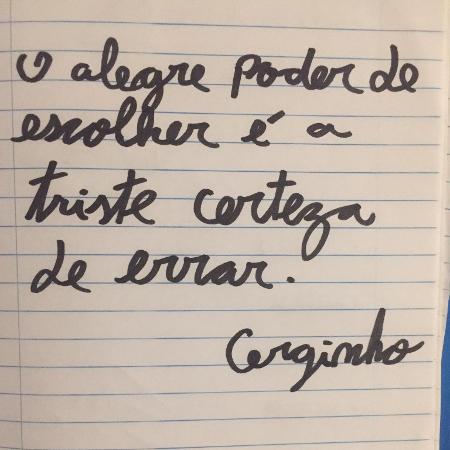 O alegre poder de
escolher é a
triste certeza
de errar.
Cerginho